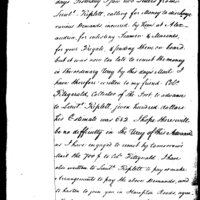 days Yesterday I saw two Letters from
Lieut. Triplett, calling for Money to discharge
various Demands incurred, by them at Alex-
andria for enlisting Seamen & Marines,
for your Frigate, & finding them on board.
but it was now too late to remit the money
in the ordinary Way by this days Mail. I
have therefore written to my friend Col.
Fitzgerald, Collector of the Port to advance
to Lieut. Triplett, seven hundred dollars.
his Estimate was 682. I hope there will
be no difficulty on the Score of this Advance
as I have engaged to remit by tomorrows
Mail the 700 $ to Col. Fitzgerald. I have
also written to Lieut. Triplett, to pay
arrangements to pay the above Demands, and
to hasten to join you in Hampton Roads,